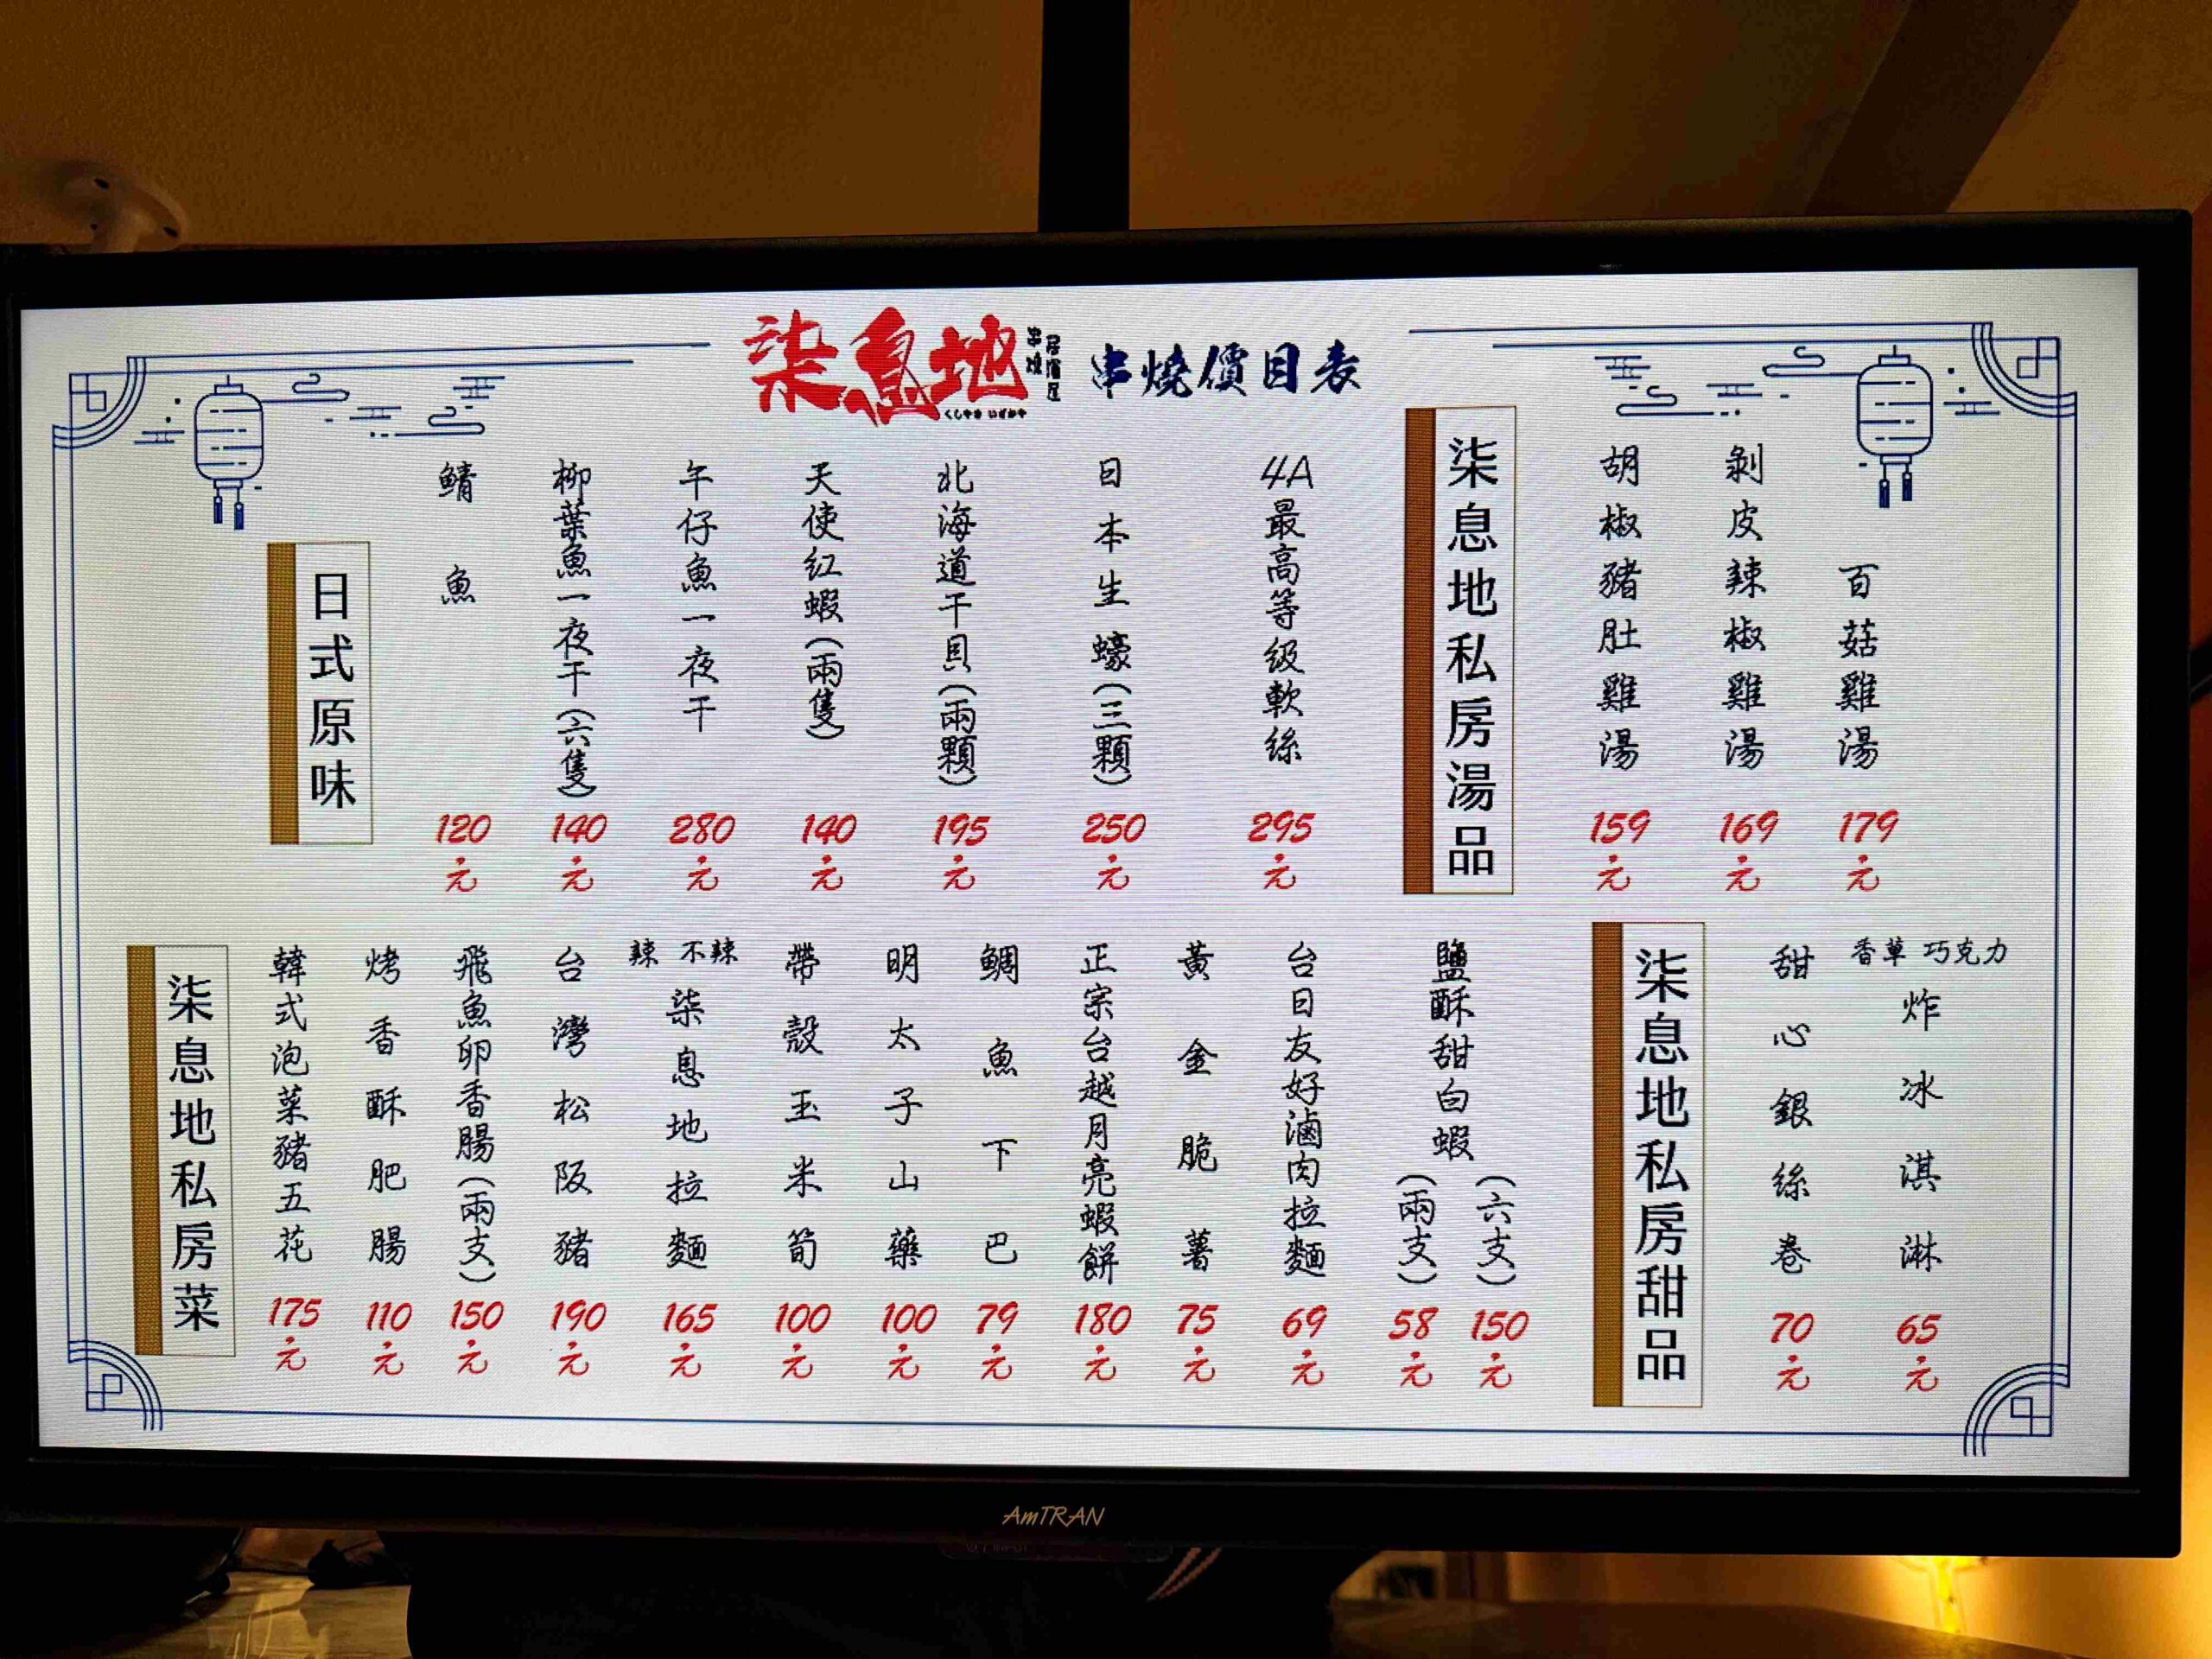 柒息地
串燒
居酒屋
くしやき いざかや
串燒價目表
日式原味
鯖魚
120元
柳葉魚一夜干(六隻)
140元
午仔魚一夜干
280元
天使紅蝦(兩隻)
140元
北海道干貝(兩顆)
195元
日本生蠔(三顆)
250元
4A最高等級軟絲
295元
柒息地私房湯品
胡椒豬肚雞湯
159元
剝皮辣椒雞湯
169元
百菇雞湯
179元
柒息地私房菜
韓式泡菜豬五花
175元
烤香酥肥腸
110元
飛魚卵香腸(兩支)
150元
台灣松阪豬
190元
辣 不辣
柒息地拉麵
165元
帶殼玉米筍
100元
明太子山藥
100元
鯛魚下巴
79元
正宗台越月亮蝦餅
180元
黃金脆薯
75元
台日友好滷肉拉麵
69元
鹽酥甜白蝦
(兩支)
58元
(六支)
150元
柒息地私房甜品
甜心銀絲卷
70元
香草 巧克力
炸冰淇淋
65元
AmTRAN